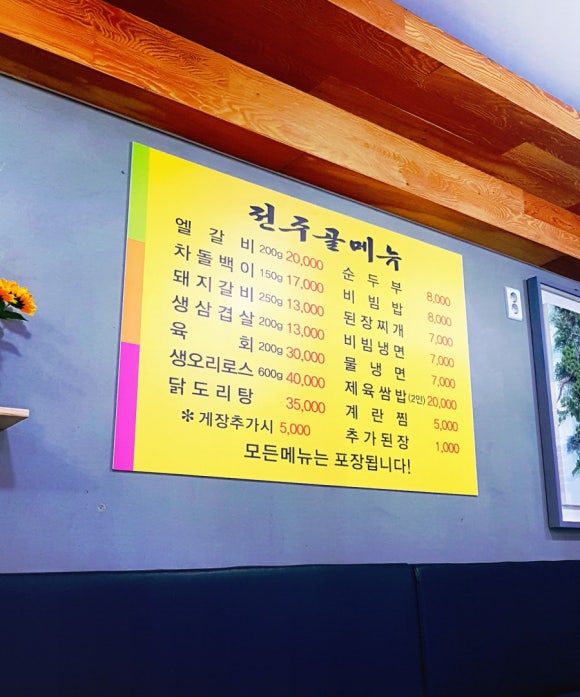 전주골메뉴
엘갈비 200g 20,000
차돌백이 150g 17,000
돼지갈비 250g 13,000
생삼겹살 200g 13,000
육회 200g 30,000
생오리로스 600g 40,000
닭도리탕 35,000
※게장추가시 5,000
순두부 8,000
비빔밥 8,000
된장찌개 7,000
비빔냉면 7,000
물냉면 7,000
제육쌈밥(2인) 20,000
계란찜 5,000
추가된장 1,000
모든메뉴는 포장됩니다!